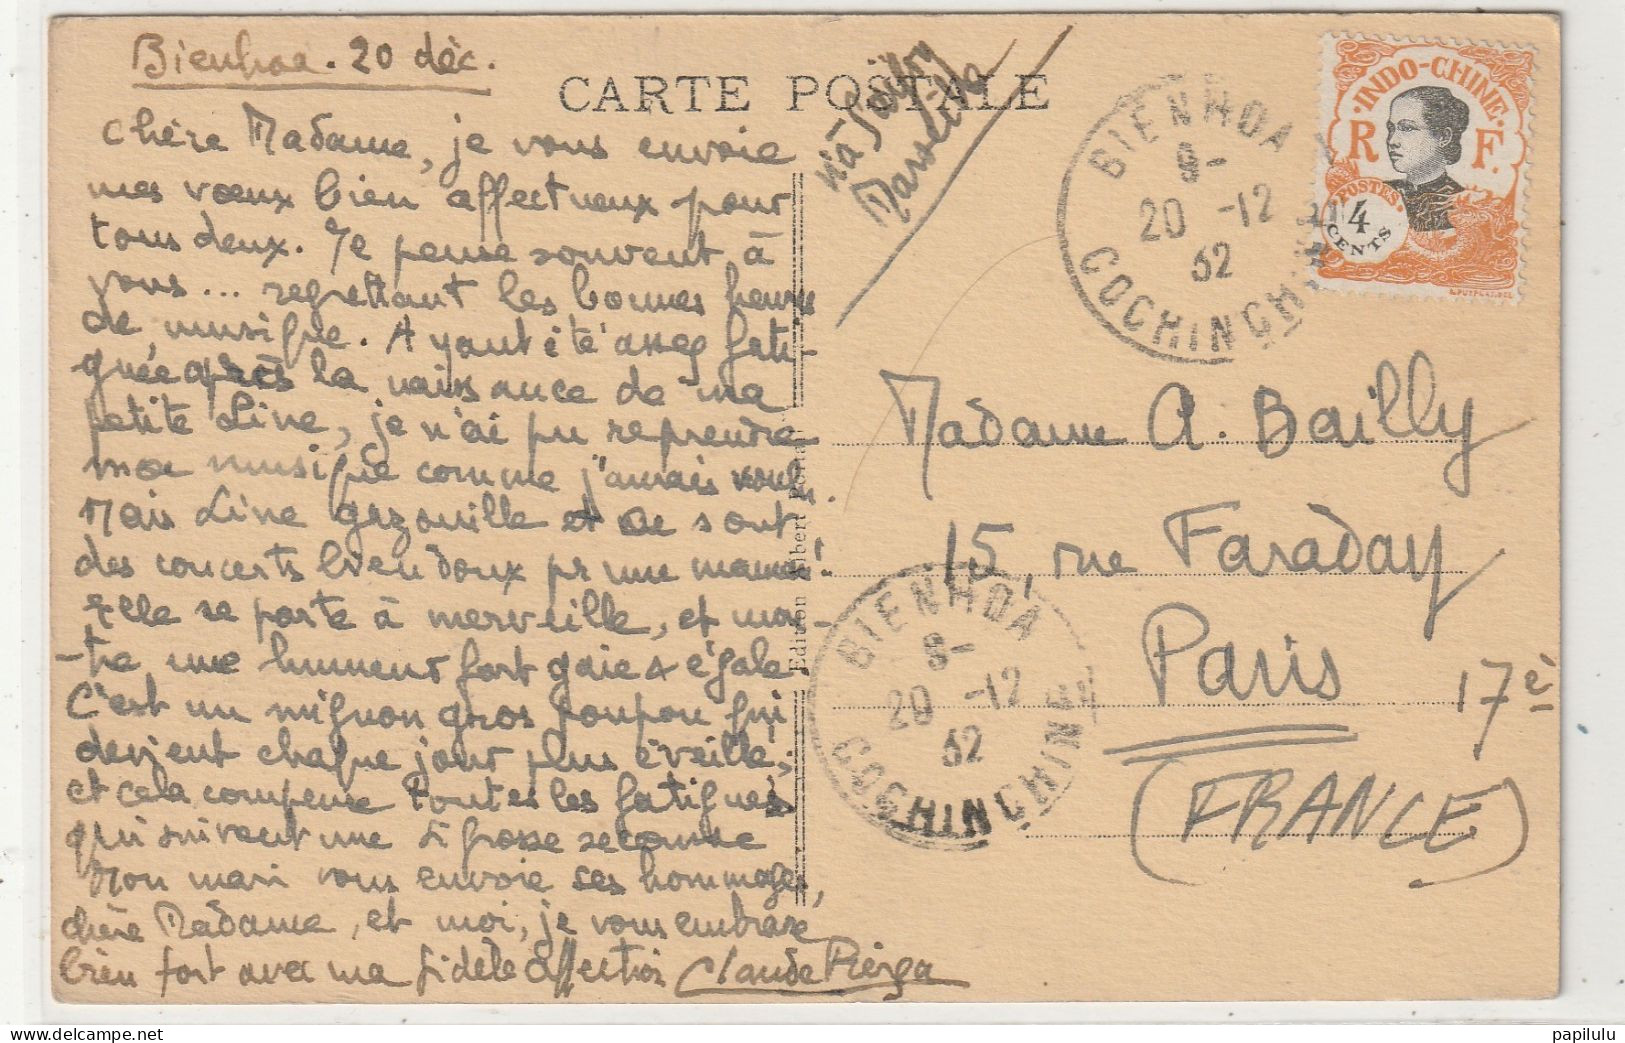 Bienhoa. 20 déc.
CARTE POSTALE
viâ Saïgon
Marseille
Chère Madame, je vous envoie
mes vœux bien affectueux pour
tous deux. Je pense souvent à
vous... regrettant les bonnes heures
de musique. Ayant été assez fati-
guée après la naissance de ma
petite Line, je n'ai pu reprendre
ma musique comme j'aurais voulu.
Mais Line gazouille et ce sont
des concerts bien doux pr une maman!
Elle se porte à merveille, et mon-
-tre une humeur fort gaie & égale.
C'est un mignon gros poupon qui
devient chaque jour plus éveillé,
et cela compense toutes les fatigues
qui suivent une si grosse secousse
Mon mari vous envoie ses hommages,
chère Madame, et moi, je vous embrasse
bien fort avec ma fidèle affection Claude
Edition Albert Portail
BIENHOA
9-
20 -12
32
COCHINCHINE
INDO-CHINE
R F.
POSTES
4
CENTS
Madame A. Bailly
15, rue Faraday
Paris 17è
(FRANCE)
BIENHOA
9-
20 -12
32
COCHINCHINE
papilulu